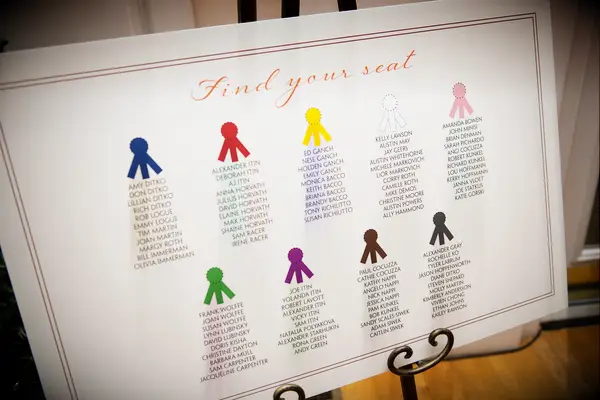 Find your seat
AMY DITKO
DON DITKO
LILLIAN DITKO
RICH DITKO
ROB LOGUE
EMMY LOGUE
TIM MARTIN
JOAN MARTIN
MARGY ROTH
BILL IMMERMAN
OLIVIA IMMERMAN
ALEXANDER ITIN
DEBORAH ITIN
AJ ITIN
ANNA HORVATH
JULIUS HORVATH
DAVID HORVATH
ELAINE HORVATH
MAX HORVATH
SHAINE HORVATH
SAM RACER
IRENE RACER
ED GANCH
NESE GANCH
HOLDEN GANCH
EMILY GANCH
MONICA BACCO
KEITH BACCO
BRIANA BACCO
BRANDY BACCO
TONY RICHIUTTO
SUSAN RICHIUTTO
KELLY LAWSON
AUSTIN MAY
JAY GEERS
AUSTIN WHITEHORNE
MICHELE MARKOVICH
LIOR MARKOVICH
CORRY ROTH
CAMILLE ROTH
MIKE DEMOS
CHRISTINE MOORE
AUSTIN POWERS
ALLY HAMMOND
AMANDA BOWEN
JOHN MINSI
BRIAN DENMAN
SARAH PICHARDO
ANGI COCUZZA
ROBERT KUNKEL
RICHARD KUNKEL
LOU HOFFMANN
KERRY HOFFMANN
JANNA VUJET
JOE STATKUS
KATIE GORSKI
FRANK WOLFFE
JOAN WOLFFE
SUSAN WOLFFE
LYNN LUBINSKY
DAVID LUBINSKY
DORIS KISHA
CHRISTINE DAYTON
BARBARA MULL
SAM CARPENTER
JACQUELINE CARPENTER
JOE ITIN
YOLANDA ITIN
ROBERT LAVOTT
ALEXANDER ITIN
VICKY ITIN
SARA ITIN
NATALIA POLYAKOVA
ALEXANDER STARHUKIN
RONA GREEN
ANDY GREEN
PAUL COCUZZA
CATHIE COCUZZA
KATHY NAPPI
ANGELO NAPPI
NICK NAPPI
JESSICA NAPPI
PAM KUNKEL
BOB KUNKEL
SANDY SCALES SIWEK
ADAM SIWEK
CAITLIN SIWEK
ALEXANDER GRAY
ROCHELLE KO
TYLER LABLUM
JASON HOPPENWORTH
DIANE DITKO
STEVEN SHEPARD
MOLLY MARTIN
KIMBERLY ANDERSON
VIVIEN CHONG
ETHAN JOHNS
KAILEY RAWSON